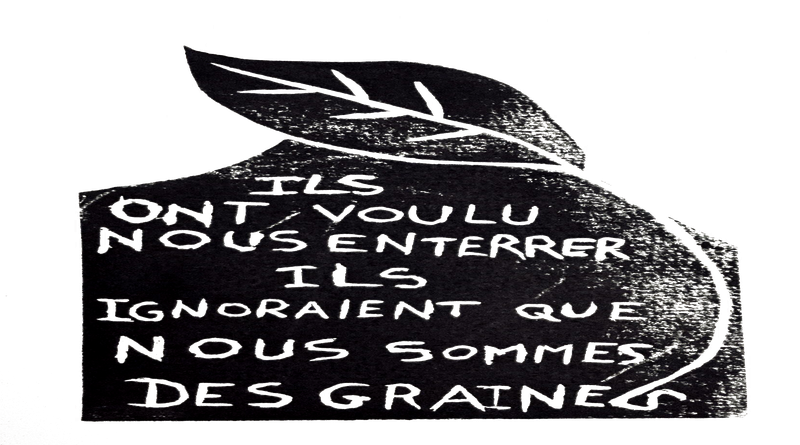 ILS
ONT VOULU
NOUS ENTERRER
ILS
IGNORAIENT QUE
NOUS SOMMES
DES GRAINES